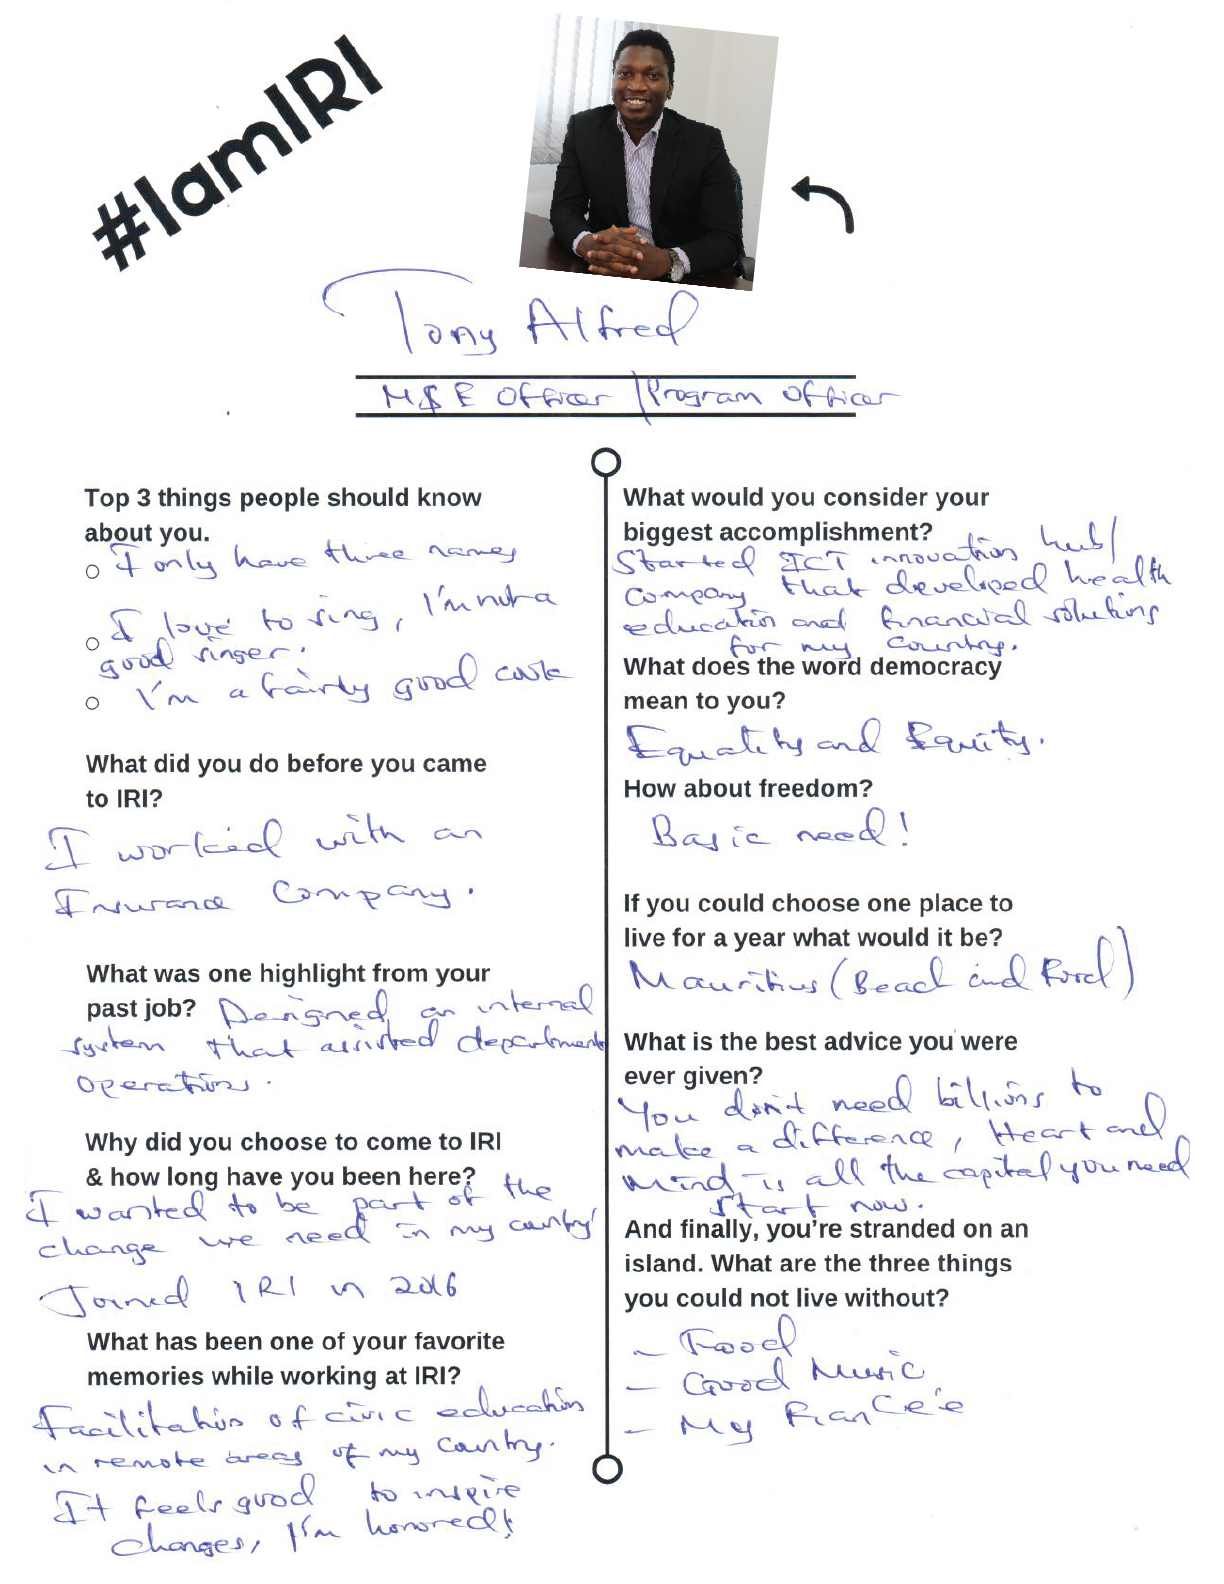 #IamIRI
Tony Alfred
M&E Officer / Program Officer
Top 3 things people should know
about you.
I only have three names
I love to sing, I'm not a
good singer.
I'm a fairly good cook
What did you do before you came
to IRI?
I worked with an
Insurance Company.
What was one highlight from your
past job? Designed an internal
system that assisted departments
operations.
Why did you choose to come to IRI
& how long have you been here?
I wanted to be part of the
change we need in my country
Joined IRI in 2016
What has been one of your favorite
memories while working at IRI?
Facilitation of civic education
in remote areas of my country.
It feels good to inspire
changes, I'm honored!
What would you consider your
biggest accomplishment?
Started ICT innovation hub/
company that developed health
education and financial solutions
for my country.
What does the word democracy
mean to you?
Equality and Equity.
How about freedom?
Basic need!
If you could choose one place to
live for a year what would it be?
Mauritius (Beach and Food)
What is the best advice you were
ever given?
You don't need billions to
make a difference, Heart and
mind is all the capital you need
start now.
And finally, you're stranded on an
island. What are the three things
you could not live without?
- Food
- Good Music
- My Fiancée